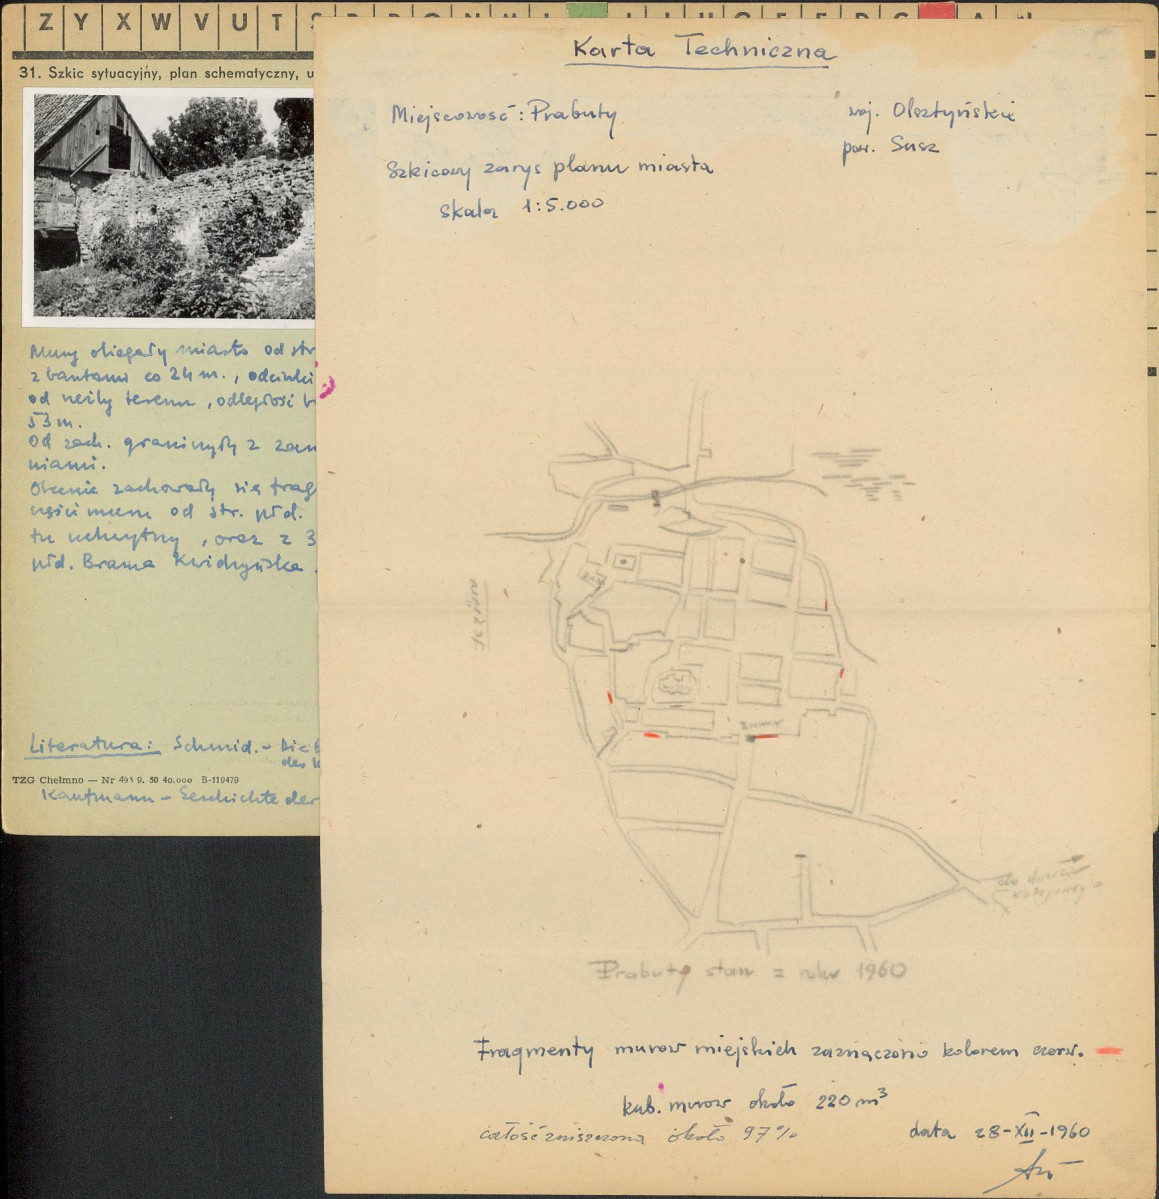 Z Y X W V U T S
31. Szkic sytuacyjny, plan schematyczny, u
Mury obiegały miasto od str
z basztami co 24 m., odcinki
od rzeźby terenu, odległość b
53 m.
Od zach. graniczyły z zam
niami.
Obecnie zachowały się frag
części muru od str. płd.
tu uchwytny, oraz z 3
płd. Brama Kwidzyńska.
Literatura: Schmid. - Die
des
TZG Chełmno — Nr 491 9. 50 40.000 B-119479
Kaufmann - Geschichte der
Karta Techniczna
Miejscowość: Prabuty
woj. Olsztyńskie
pow. Susz
Szkicowy zarys planu miasta
skala 1:5.000
Jezioro
do dworca
kolejowego
Prabuty stan z roku 1960
Fragmenty murów miejskich zaznaczono kolorem czerw.
kub. murów około 220 m³
całość zniszczona około 97%
data 28-XII-1960